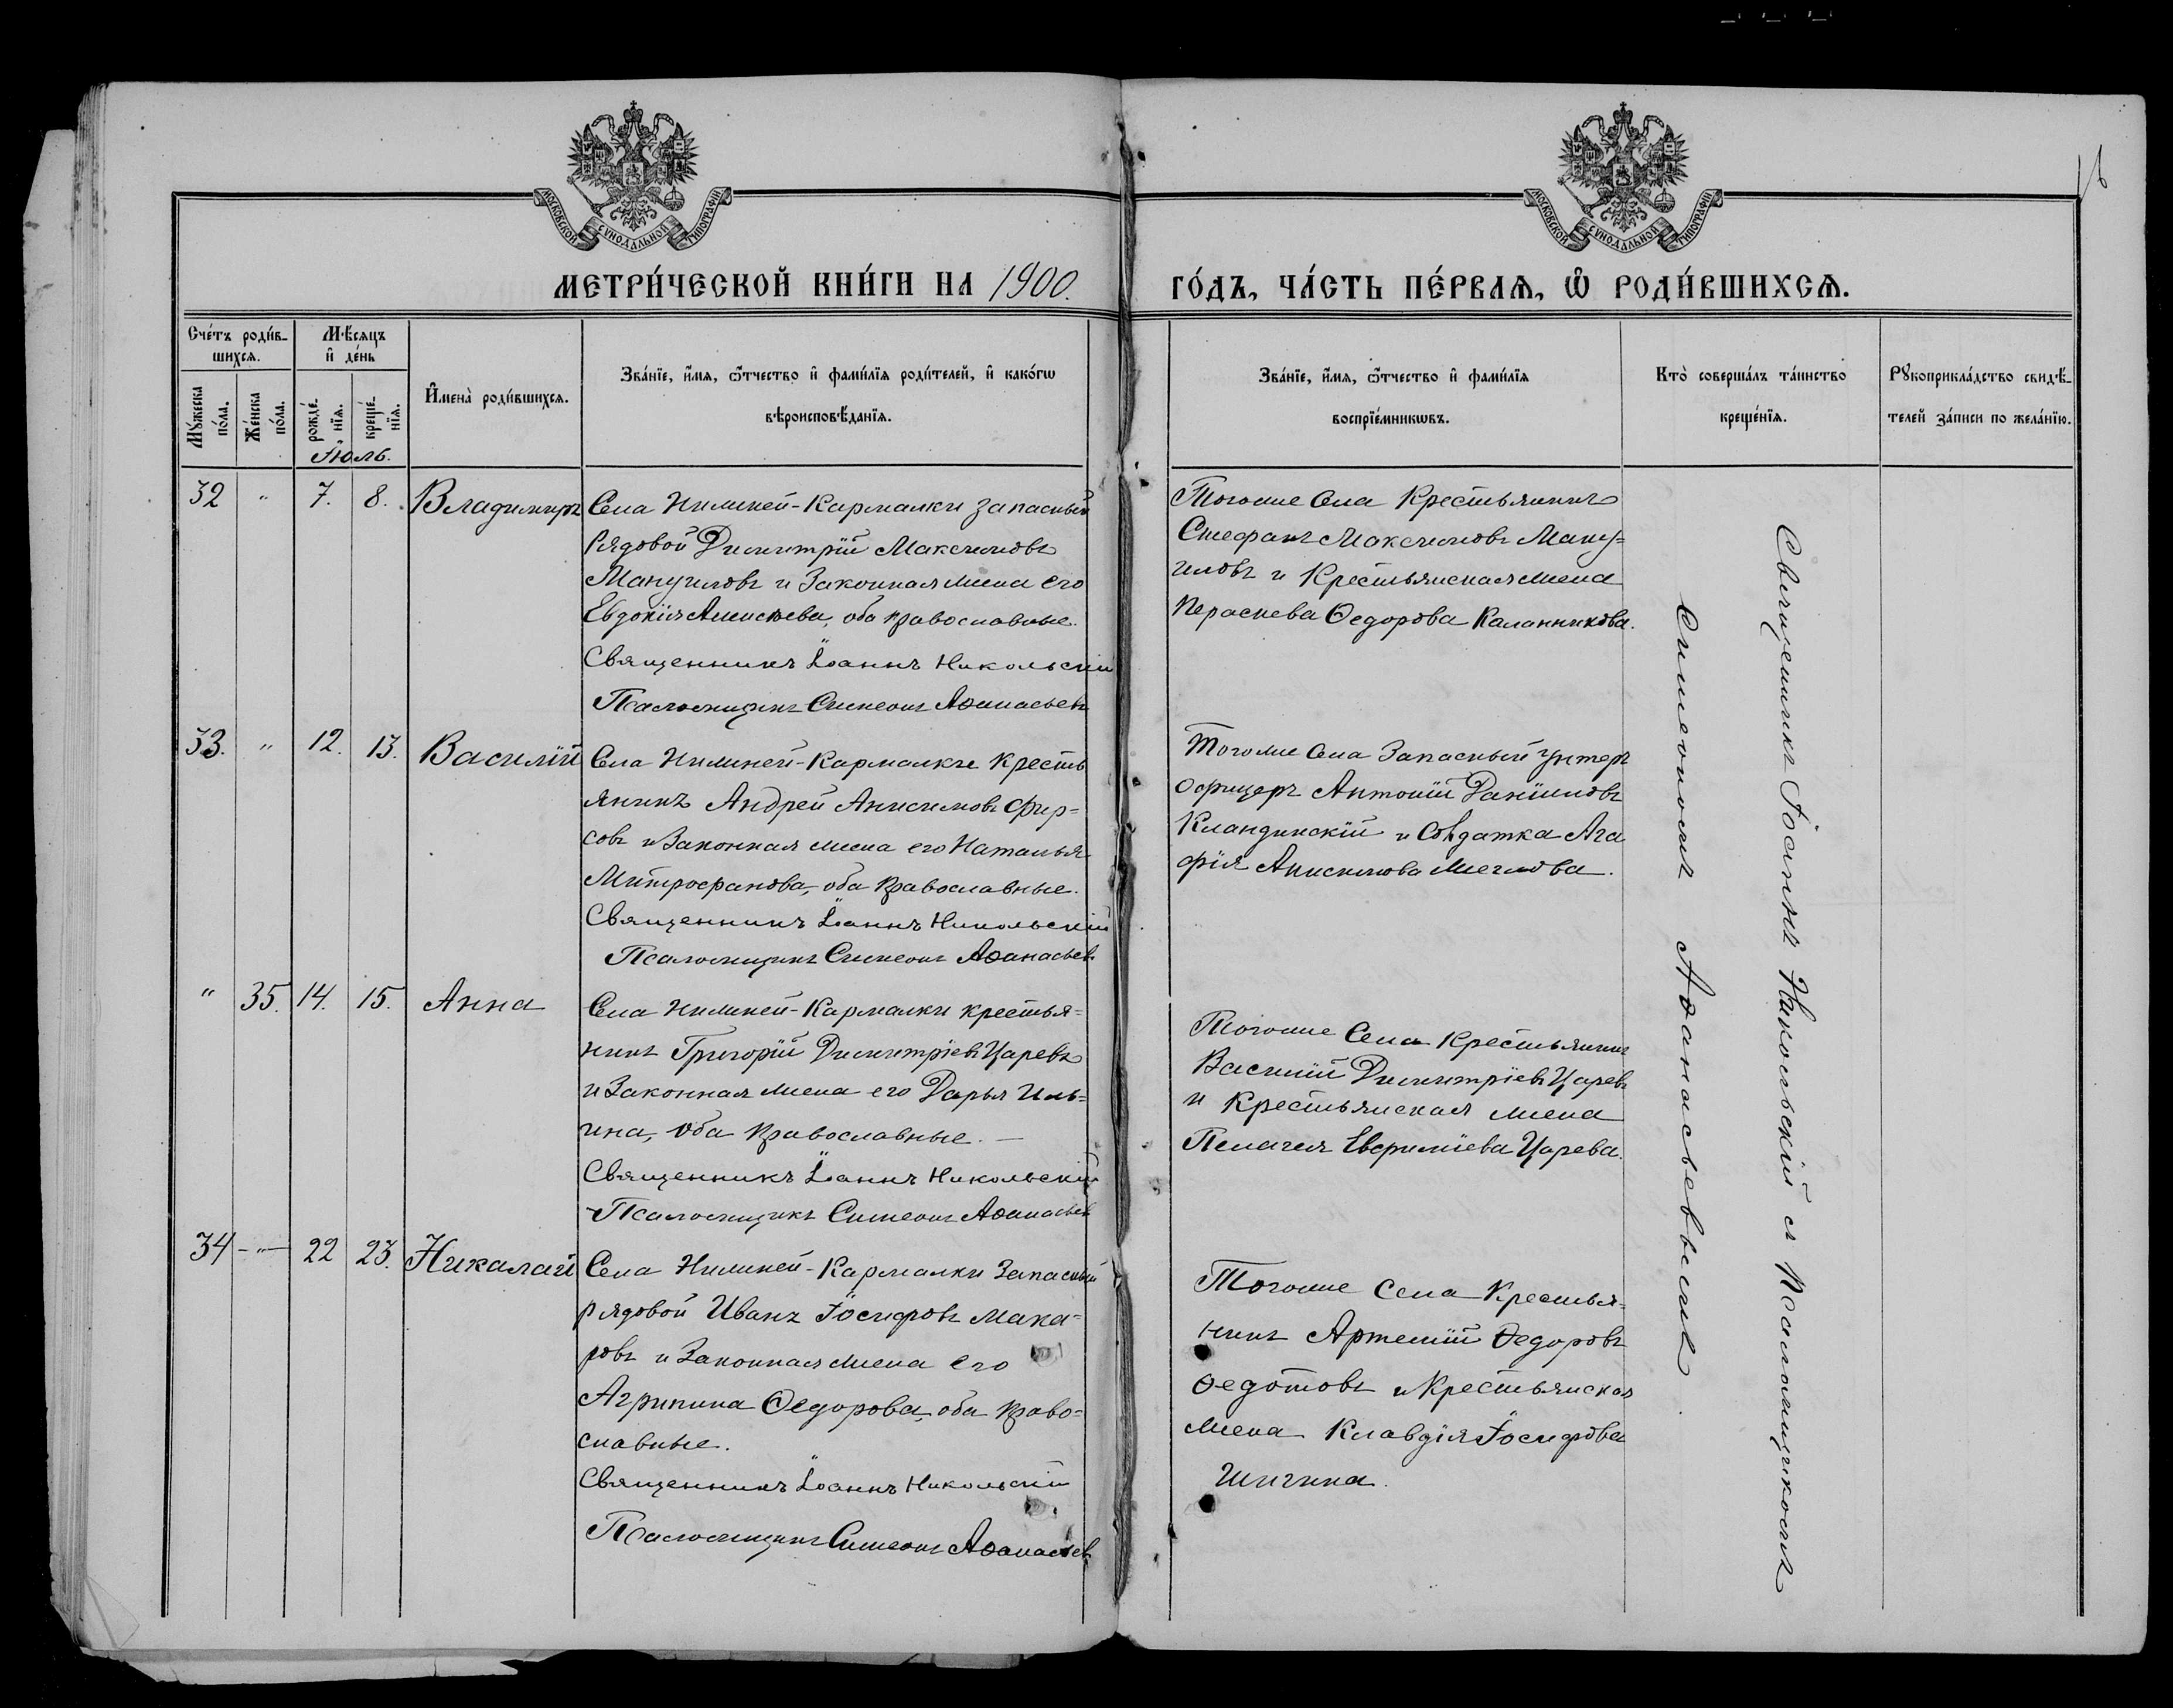 МОСКОВСКОЙ СѴНОДАЛЬНОЙ ТИПОГРАФІИ
МОСКОВСКОЙ СѴНОДАЛЬНОЙ ТИПОГРАФІИ
МЕТРИ́ЧЕСКОЙ КНИ́ГИ НА 1900.
ГО́ДЪ, ЧА́СТЬ ПЕ́РВАѦ, Ѡ҆ РОДИ́ВШИХСѦ.
Сче́тъ роди́в-
шихсѧ.
Мꙋ́жеска по́ла.
Же́нска по́ла.
Мѣ́сѧцъ
и҆ де́нь
рожде́-
нїѧ.
креще́-
нїѧ.
И҆мена̀ роди́вшихсѧ.
Зва́нїе, и҆́мѧ, ѻ҆́тчество и҆ фами́лїѧ роди́телей, и҆ како́гѡ
вѣроисповѣ́данїѧ.
Зва́нїе, и҆́мѧ, ѻ҆́тчество и҆ фами́лїѧ
воспрїе́мникѡвъ.
Кто̀ соверша́лъ та́инство
креще́нїѧ.
Рꙋкоприкла́дство свидѣ́-
телей за́писи по жела́нїю.
Іюль.
32 " 7. 8. Владимиръ
Села Нилиней-Кармалки запасный
рядовой Димитрій Максимовъ
Мануиловъ и Законная жена его
Евдокія Алексѣева, оба православные.
Священникъ Іоаннъ Никольскій
Псаломщикъ Симеонъ Аѳанасьевъ
Тогоже Села Крестьянинъ
Стефанъ Максимовъ Ману-
иловъ и Крестьянская жена
Параскева Ѳедорова Каланникова.
33. " 12. 13. Василій
Села Нилиней-Кармалки Кресть
янинъ Андрей Анисимовъ Фир-
совъ и Законная жена его Наталья
Митрофанова, оба православные.
Священникъ Іоаннъ Никольскій
Псаломщикъ Симеонъ Аѳанасьевъ
Тогоже Села Запасный унтеръ
офицеръ Антоній Даніиловъ
Кландинскій и Солдатка Ага
фія Анисимова
" 35. 14. 15. Анна
Села Нилиней-Кармалки крестья-
нинъ Григорій Димитріевъ Царевъ
и Законная жена его Дарья Иль-
ина, оба православные. —
Священникъ Іоаннъ Никольскій
Псаломщикъ Симеонъ Аѳанасьевъ
Тогоже Села Крестьянинъ
Василій Димитріевъ Царевъ
и Крестьянская жена
Пелагея Евфиміева Царева.
34 -"- 22 23. Николай
Села Нилиней-Кармалки Запасный
рядовой Иванъ Іосифовъ Мака-
ровъ и Законная жена его
Агрипина Ѳедорова, оба право-
славные.
Священникъ Іоаннъ Никольскій
Псаломщикъ Симеонъ Аѳанасьевъ
Тогоже Села Крестья-
нинъ Артемій Ѳедоровъ
Ѳедотовъ и Крестьянская
жена Клавдія Іосифова
Шигина.
Священникъ Іоаннъ Никольскій съ Псаломщикомъ
Симеономъ Аѳанасьевымъ.